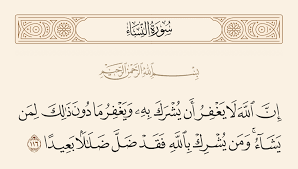 سُورَةُ النِّسَاءِ
بِسْمِ اللَّهِ الرَّحْمَٰنِ الرَّحِيمِ
إِنَّ اللَّهَ لَا يَغْفِرُ أَن يُشْرَكَ بِهِۦ وَيَغْفِرُ مَا دُونَ ذَٰلِكَ لِمَن
يَشَآءُ ۚ وَمَن يُشْرِكْ بِاللَّهِ فَقَدْ ضَلَّ ضَلَٰلًۢا بَعِيدًا ١١٦